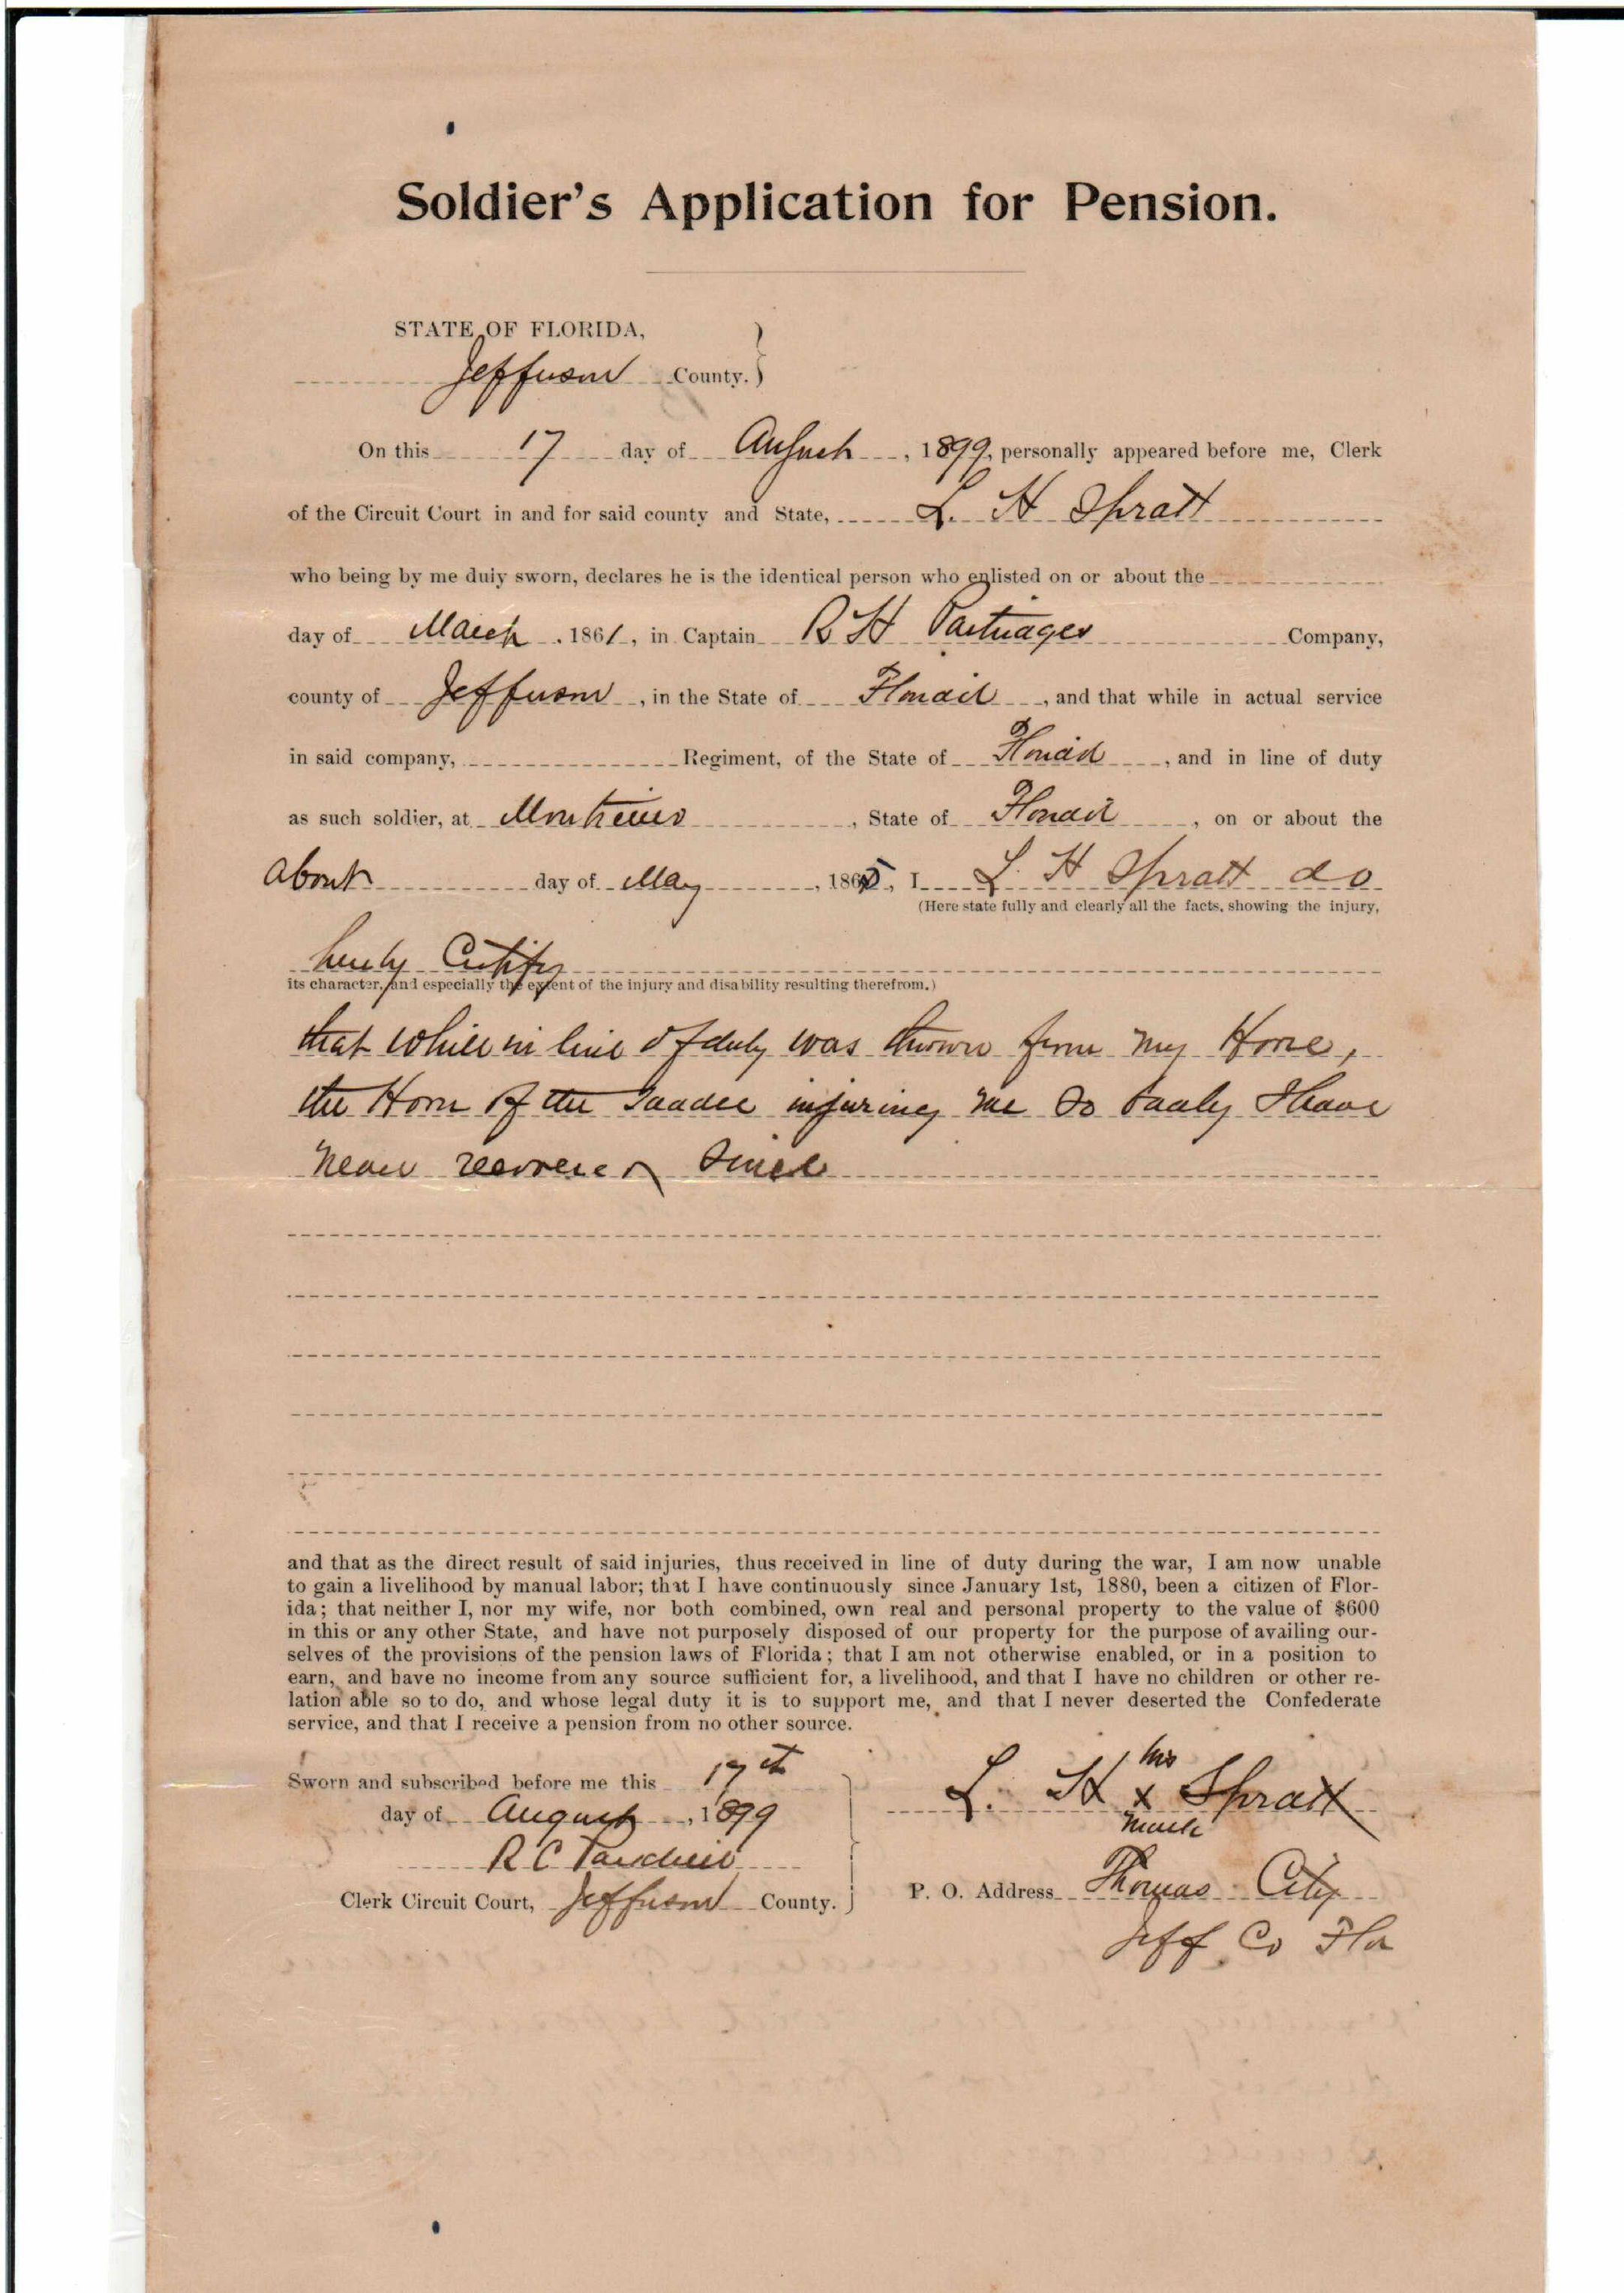 Soldier's Application for Pension.
STATE OF FLORIDA,
Jefferson County.
On this 17 day of August, 1899, personally appeared before me, Clerk
of the Circuit Court in and for said county and State, L. H Spratt
who being by me duly sworn, declares he is the identical person who enlisted on or about the
day of March, 1861, in Captain R H Partridges Company,
county of Jefferson, in the State of Florida, and that while in actual service
in said company, Regiment, of the State of Florida, and in line of duty
as such soldier, at Monticello, State of Florida, on or about the
about day of May, 1865, I L. H Spratt do
(Here state fully and clearly all the facts, showing the injury,
hereby Certify
its character, and especially the extent of the injury and disability resulting therefrom.)
that while in line of duty was thrown from my Horse,
the Horn of the Saddle injuring me so badly I have
never recovered since
and that as the direct result of said injuries, thus received in line of duty during the war, I am now unable
to gain a livelihood by manual labor; that I have continuously since January 1st, 1880, been a citizen of Flor-
ida; that neither I, nor my wife, nor both combined, own real and personal property to the value of $600
in this or any other State, and have not purposely disposed of our property for the purpose of availing our-
selves of the provisions of the pension laws of Florida; that I am not otherwise enabled, or in a position to
earn, and have no income from any source sufficient for, a livelihood, and that I have no children or other re-
lation able so to do, and whose legal duty it is to support me, and that I never deserted the Confederate
service, and that I receive a pension from no other source.
Sworn and subscribed before me this 17th
day of August, 1899
R C
Clerk Circuit Court, Jefferson County.
his
L. H x Spratt
mark
P. O. Address Thomas City
Jeff Co Fla